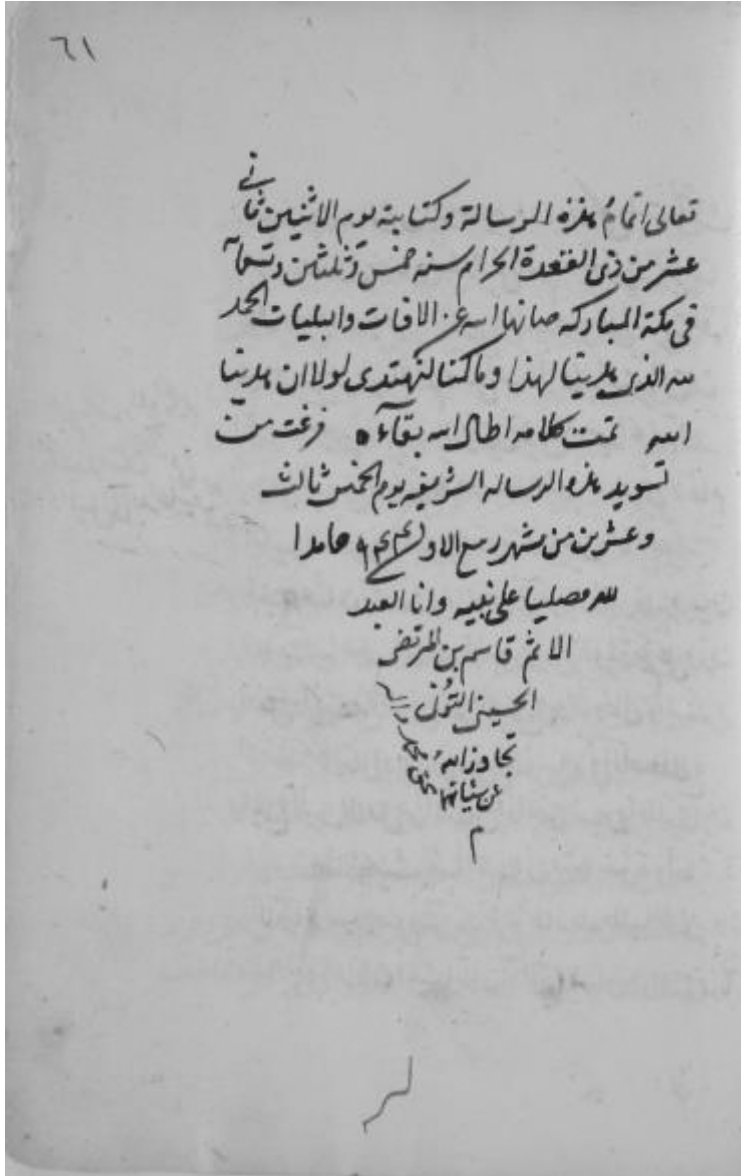 ٦١
تعالى اتمام هذه الرسالة وكتابته يوم الاثنين ثاني
عشر من ذى القعدة الحرام سنه خمس وثلثين وتسعمائة
فى مكة المباركه صانها الله عن الافات والبليات الحمد
لله الذى هدينا لهذا وما كنا لنهتدى لولا ان هدينا
الله تمت كلامه اطال الله بقآءه فرغت من
تسويد هذه الرساله الشريفه يوم الخميس ثالث
وعشرين من شهر ربيع الاول حامدا
لله مصليا على نبيه وانا العبد
الاثم قاسم بن المرتضى
الحسينى التونى
تجاوز الله
عن سيئاتهما بحق محمد
م